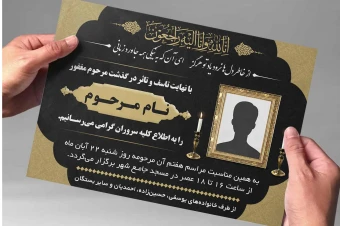 انا لله و انا الیه راجعون
از خاطر دل‌ها نرود یاد تو هرگز ای آن که به نیکی همه جا ورد زبانی
با نهایت تاسف و تاثر در گذشت مرحوم مغفور
نام مرحوم
را به اطلاع کلیه سروران گرامی می‌رسانیم.
به همین مناسبت مراسم هفتم آن مرحومه روز شنبه ۲۲ آبان ماه
از ساعت ۱۶ تا ۱۸ عصر در مسجد جامع شهر برگزار می‌گردد.
از طرف خانواده‌های یوسفی، حسین‌زاده، احمدیان و سایر بستگان